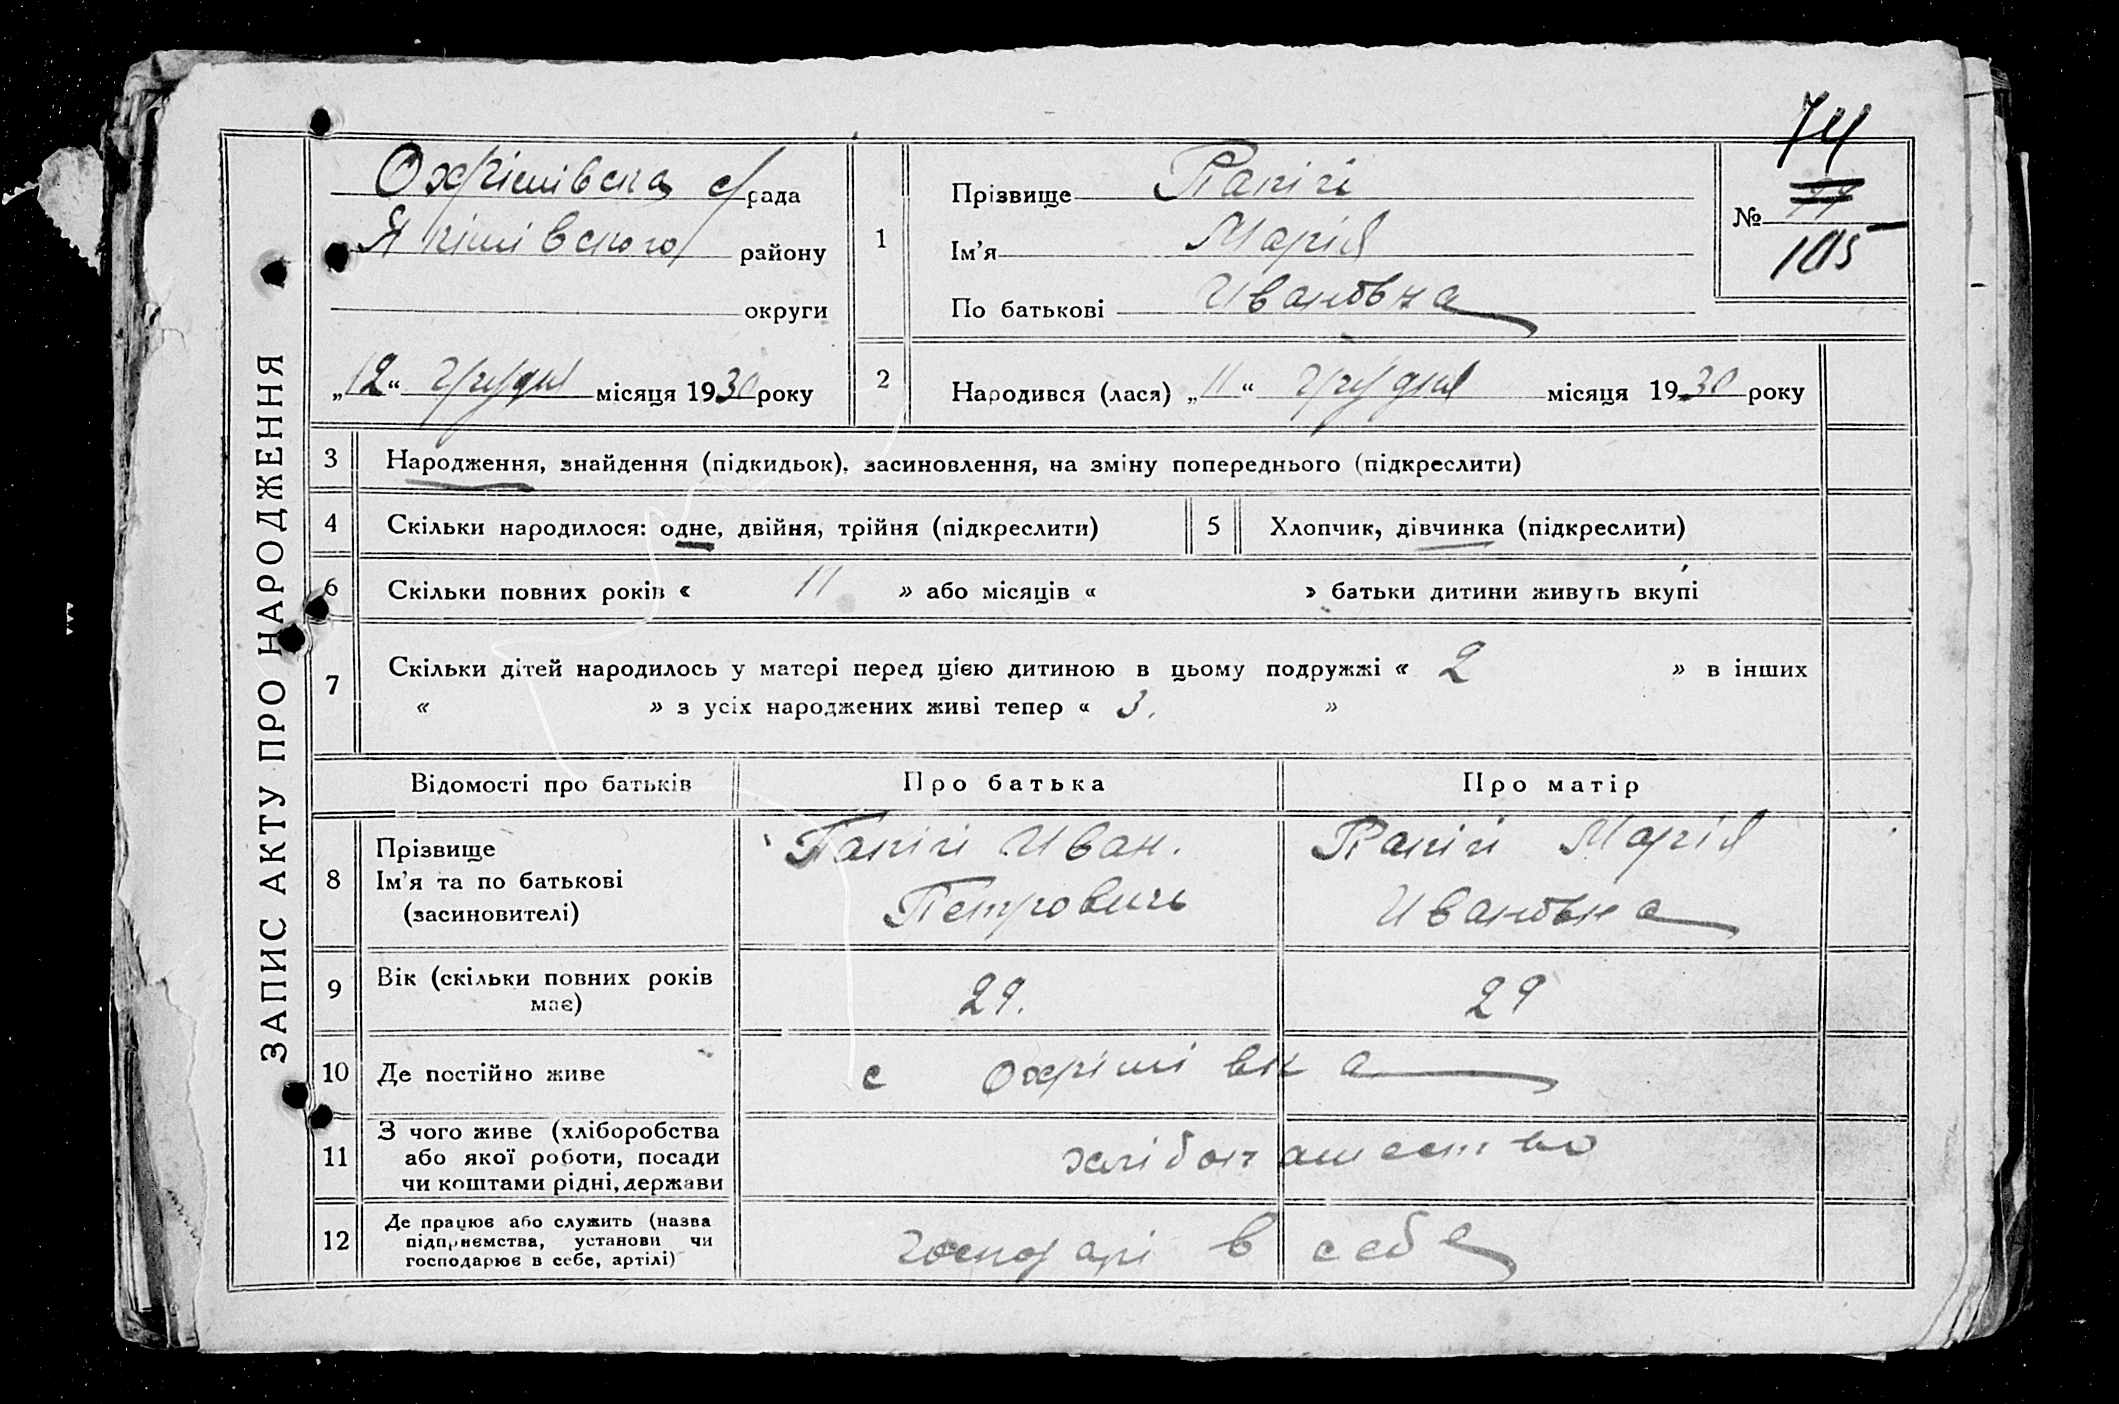 74
Охрімівска с/рада
Якімівского району
округи
„12“ грудня місяця 1930 року
1
Прізвище Папігі
Ім'я Марія
По батькові Ивановна
№ 105
2
Народився (лася) „11“ грудня місяця 1930 року
ЗАПИС АКТУ ПРО НАРОДЖЕННЯ
3 Народження, знайдення (підкидьок), засиновлення, на зміну попереднього (підкреслити)
4 Скільки народилося: одне, двійня, трійня (підкреслити)
5 Хлопчик, дівчинка (підкреслити)
6 Скільки повних років « 11 » або місяців « » батьки дитини живуть вкупі
7 Скільки дітей народилось у матері перед цією дитиною в цьому подружжі « 2 » в інших
« » з усіх народжених живі тепер « 3. »
Відомості про батьків
Про батька
Про матір
8 Прізвище
Ім'я та по батькові
(засиновителі)
Папігі Иван.
Петровичь
Папігі Марія
Ивановна
9 Вік (скільки повних років
має)
29.
29
10 Де постійно живе
с Охрімівка
11 З чого живе (хліборобства
або якої роботи, посади
чи коштами рідні, держави
хлібопашество
12 Де працює або служить (назва
підприємства, установи чи
господарює в себе, артілі)
господарі в себе